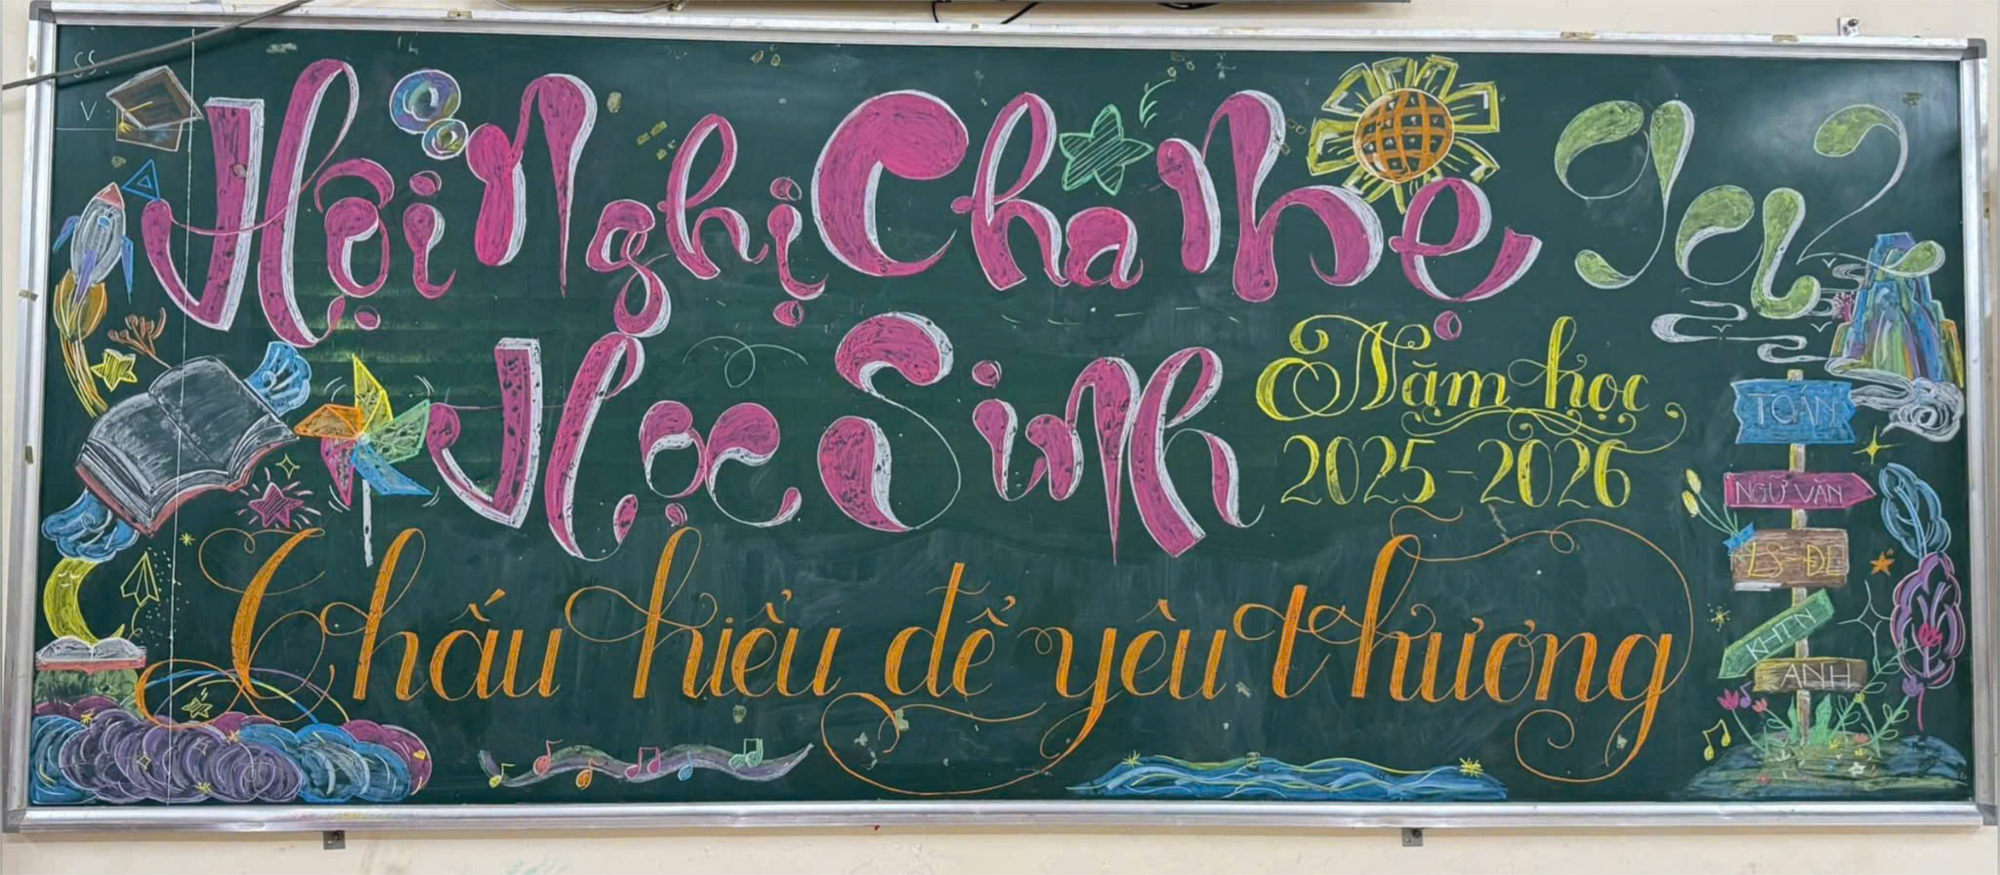 SS
V :
Hội Nghị Cha Mẹ 9a2
Học Sinh
Năm học
2025-2026
Thấu hiểu để yêu thương
TOÁN
NGỮ VĂN
LS-ĐL
KHTN
ANH